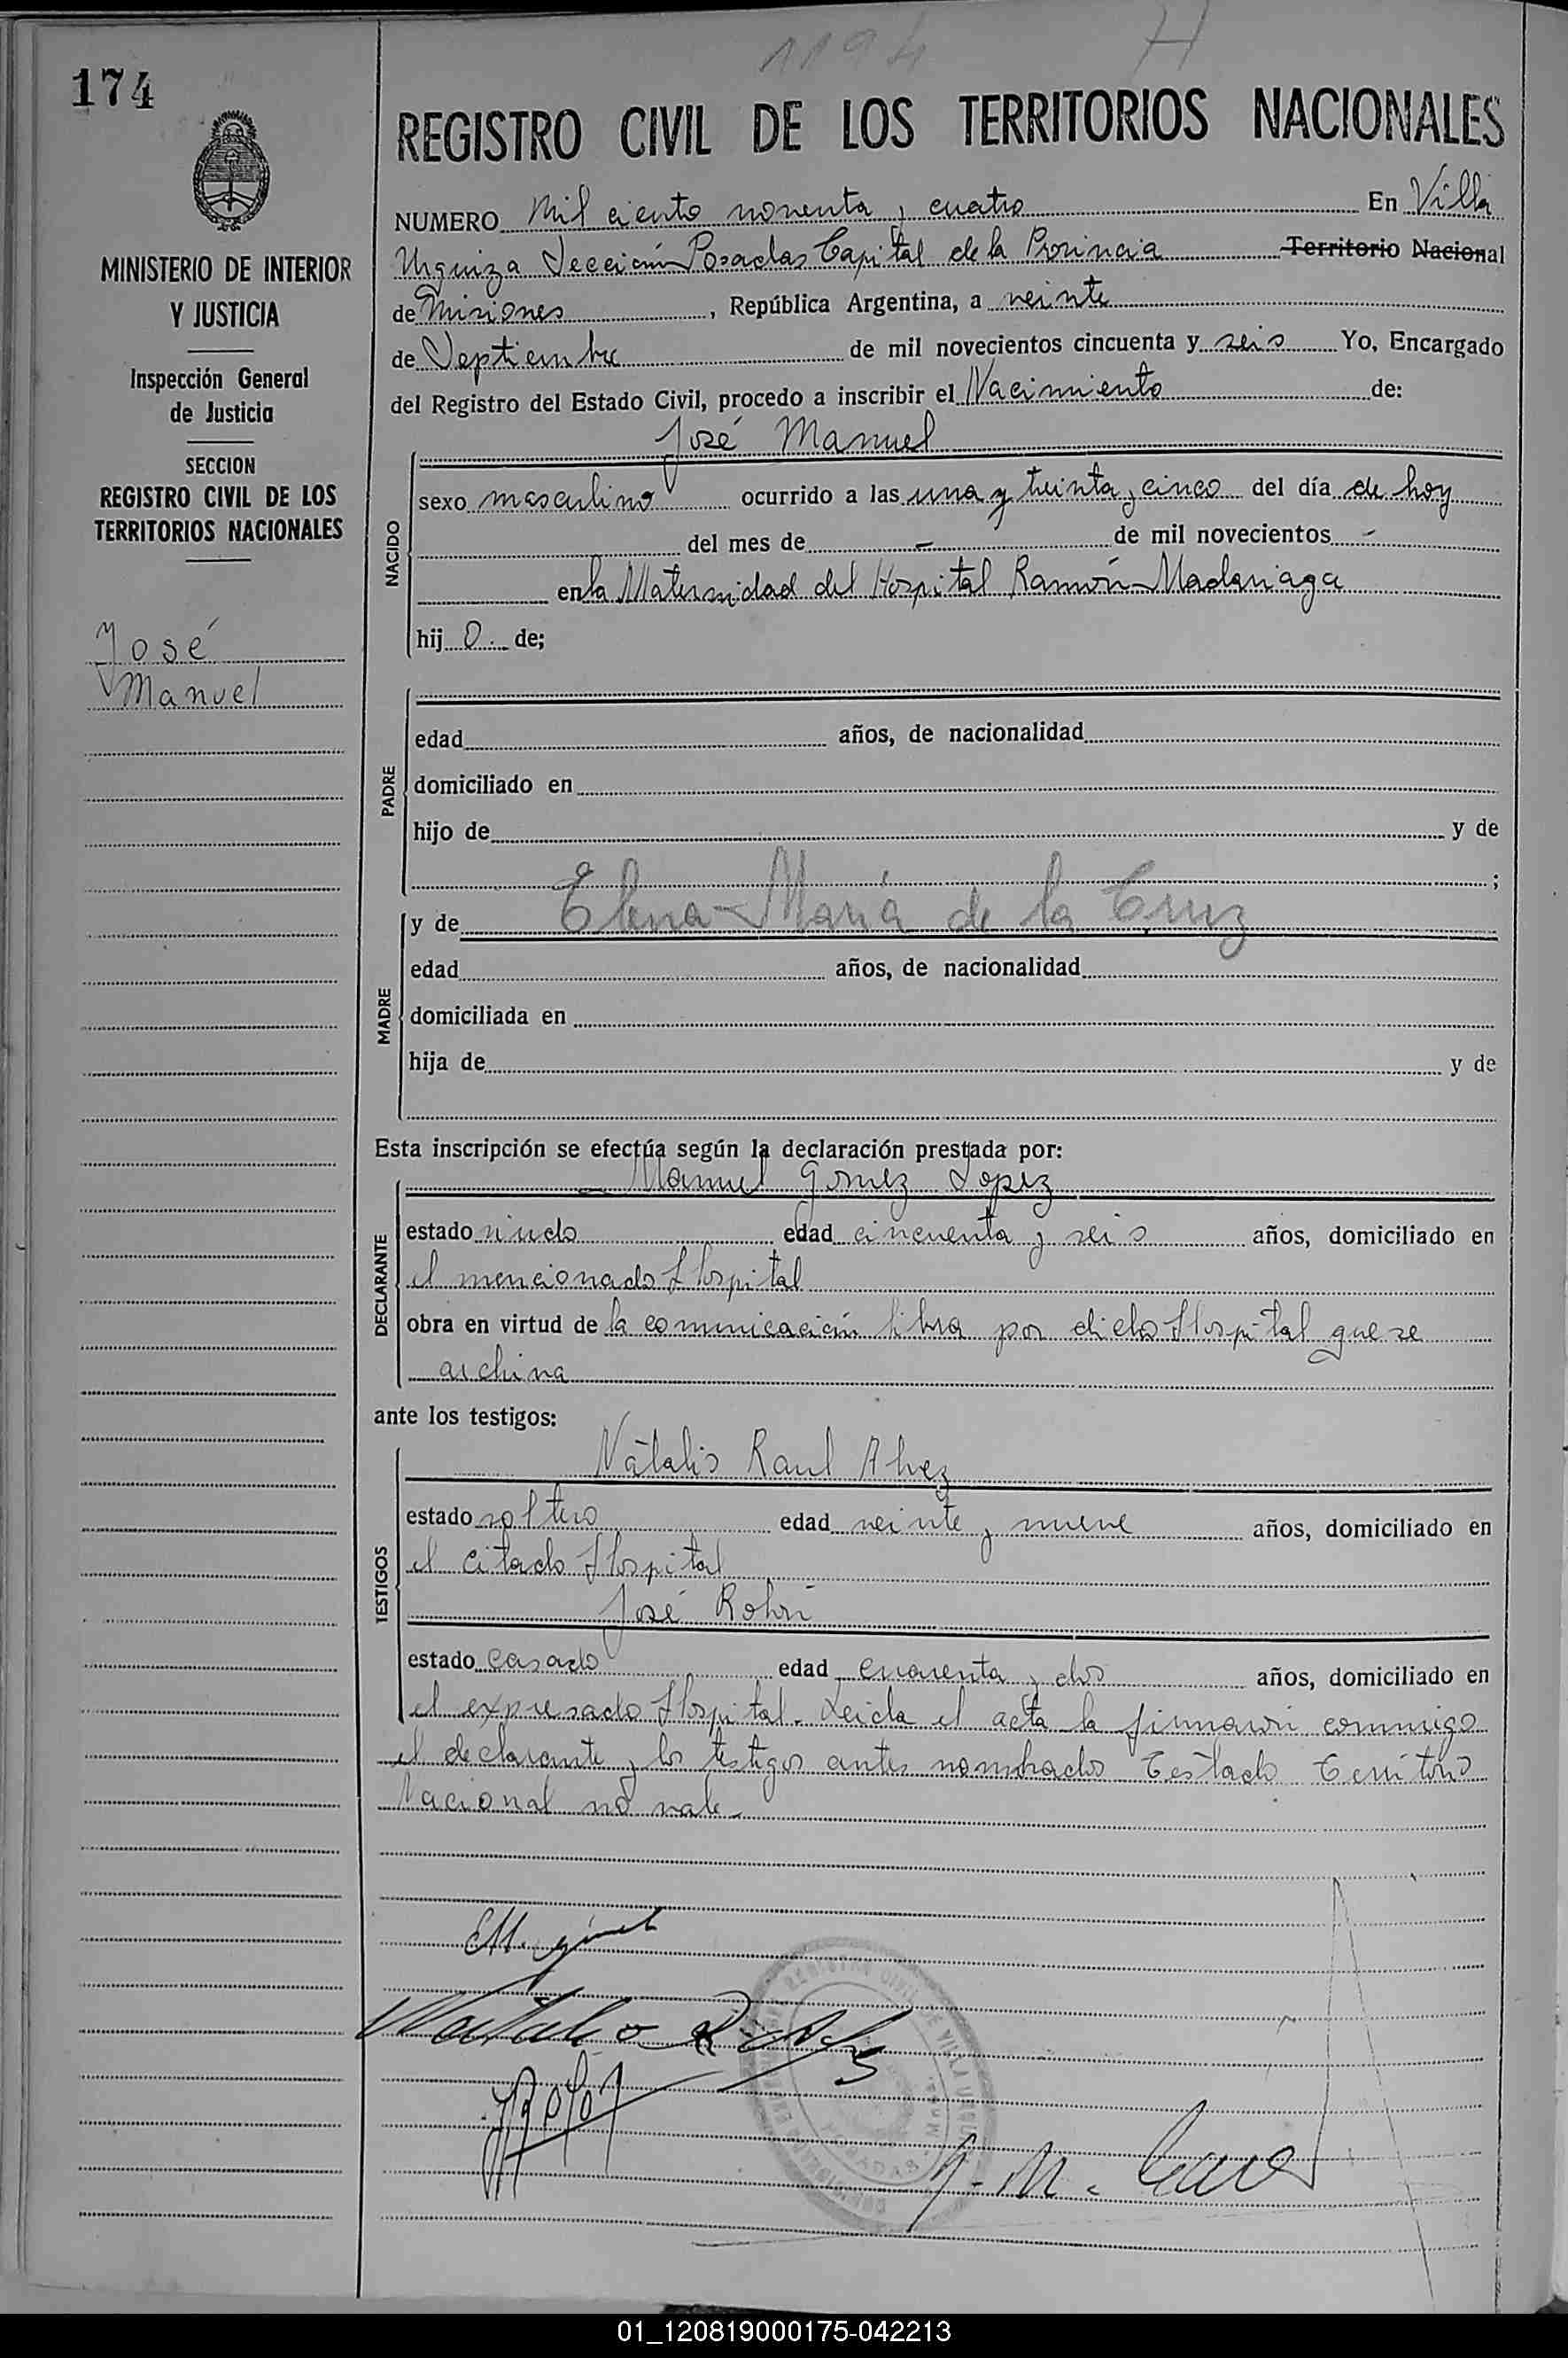 1194 H
174
REGISTRO CIVIL DE LOS TERRITORIOS NACIONALES
MINISTERIO DE INTERIOR
Y JUSTICIA
Inspección General
de Justicia
SECCION
REGISTRO CIVIL DE LOS
TERRITORIOS NACIONALES
José
Manuel
NUMERO Mil ciento noventa y cuatro En Villa
Urquiza Sección Posadas Capital de la Provincia Territorio Nacional
de Misiones, República Argentina, a veinte
de Septiembre de mil novecientos cincuenta y seis Yo, Encargado
del Registro del Estado Civil, procedo a inscribir el Nacimiento de:
NACIDO
José Manuel
sexo masculino ocurrido a las una y treinta y cinco del día de hoy
del mes de - de mil novecientos -
en la Maternidad del Hospital Ramón Madariaga
hij o. de;
PADRE
edad años, de nacionalidad
domiciliado en
hijo de y de
;
MADRE
y de Elena María de la Cruz
edad años, de nacionalidad
domiciliada en
hija de y de
Esta inscripción se efectúa según la declaración prestada por:
DECLARANTE
Manuel Gomez Lopez
estado viudo edad cincuenta y seis años, domiciliado en
el mencionado Hospital
obra en virtud de la comunicación libra por dicho Hospital que se
archiva
ante los testigos:
TESTIGOS
Natalio Raul Alvez
estado soltero edad veinte y nueve años, domiciliado en
el citado Hospital
José
estado casado edad cuarenta y dos años, domiciliado en
el expresado Hospital. Leida el acta la firmaron conmigo
el declarante y los testigos antes nombrados Testado Territorio
Nacional no vale.
Natalio R.
01_120819000175-042213